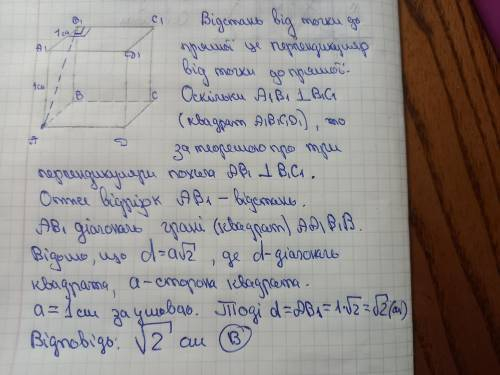 B1
C1
1см
A1
D1
1см
B
C
A
D
Відстань від точки до
прямої це перпендикуляр
від точки до прямої.
Оскільки A1B1 ⊥ B1C1
(квадрат A1B1C1D1), то
за теоремою про три
перпендикуляри похила AB1 ⊥ B1C1.
Отже відрізок AB1 – відстань.
AB1 діагональ грані (квадрат) AA1B1B.
Відомо, що d=a√2, де d-діагональ
квадрата, a-сторона квадрата.
a = 1см за умовою. Тоді d=AB1=1·√2=√2(см)
Відповідь: √2 см В